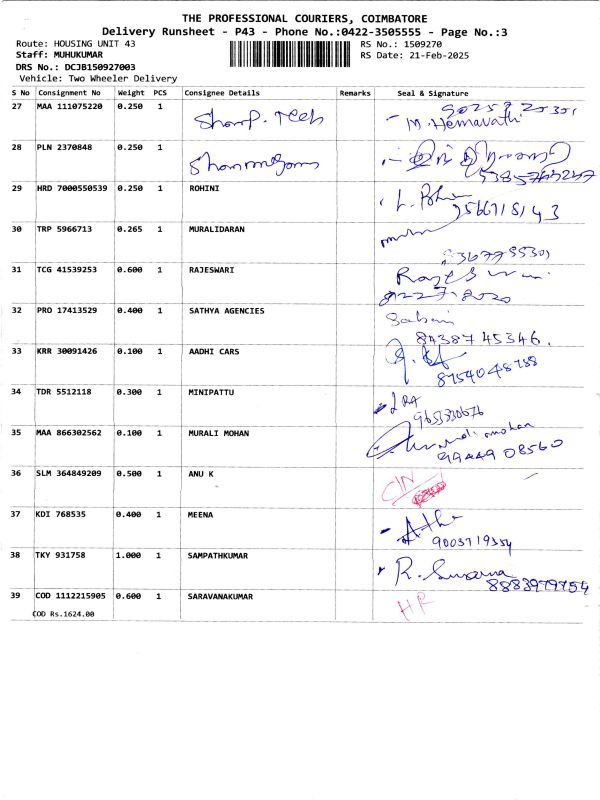 THE PROFESSIONAL COURIERS, COIMBATORE
Delivery Runsheet - P43 - Phone No.:0422-3505555 - Page No.:3
Route: HOUSING UNIT 43
RS No.: 1509270
Staff: MUHUKUMAR
RS Date: 21-Feb-2025
DRS No.: DCJB150927003
Vehicle: Two Wheeler Delivery
S No Consignment No Weight PCS Consignee Details Remarks Seal & Signature
27 MAA 111075220 0.250 1 Sharp. Tech
M. Hemavathi
28 PLN 2370848 0.250 1
29 HRD 7000550539 0.250 1 ROHINI
30 TRP 5966713 0.265 1 MURALIDARAN
31 TCG 41539253 0.600 1 RAJESWARI
32 PRO 17413529 0.400 1 SATHYA AGENCIES
8438745346.
33 KRR 30091426 0.100 1 AADHI CARS
8754048788
34 TDR 5512118 0.300 1 MINIPATTU
35 MAA 866302562 0.100 1 MURALI MOHAN
9944908560
36 SLM 364849209 0.500 1 ANU K
CIN
37 KDI 768535 0.400 1 MEENA
9003719354
38 TKY 931758 1.000 1 SAMPATHKUMAR
8883979754
39 COD 1112215905 0.600 1 SARAVANAKUMAR HR
COD Rs.1624.00